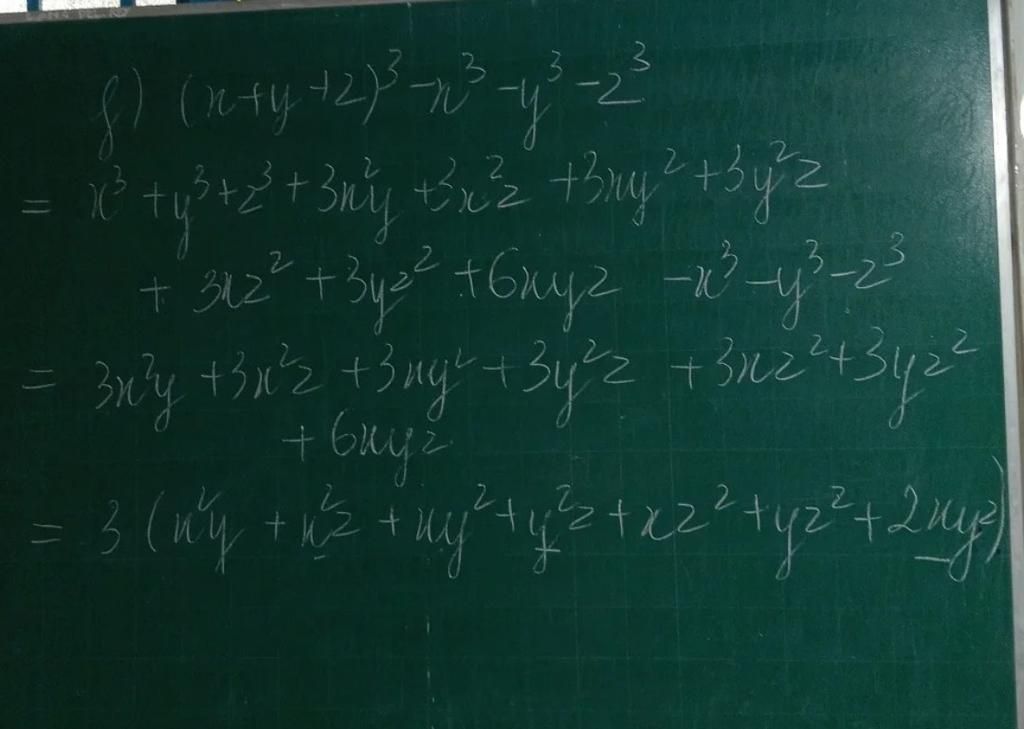 f) (x+y+z)³ -x³ -y³ -z³
= x³ +y³+z³+3x²y +3x²z +3xy²+3y²z
+ 3xz² +3yz² +6xyz -x³ -y³-z³
= 3x²y +3x²z +3xy²+3y²z +3xz²+3yz²
+6xyz
= 3 (x²y +x²z +xy²+y²z +xz²+yz²+2xyz)